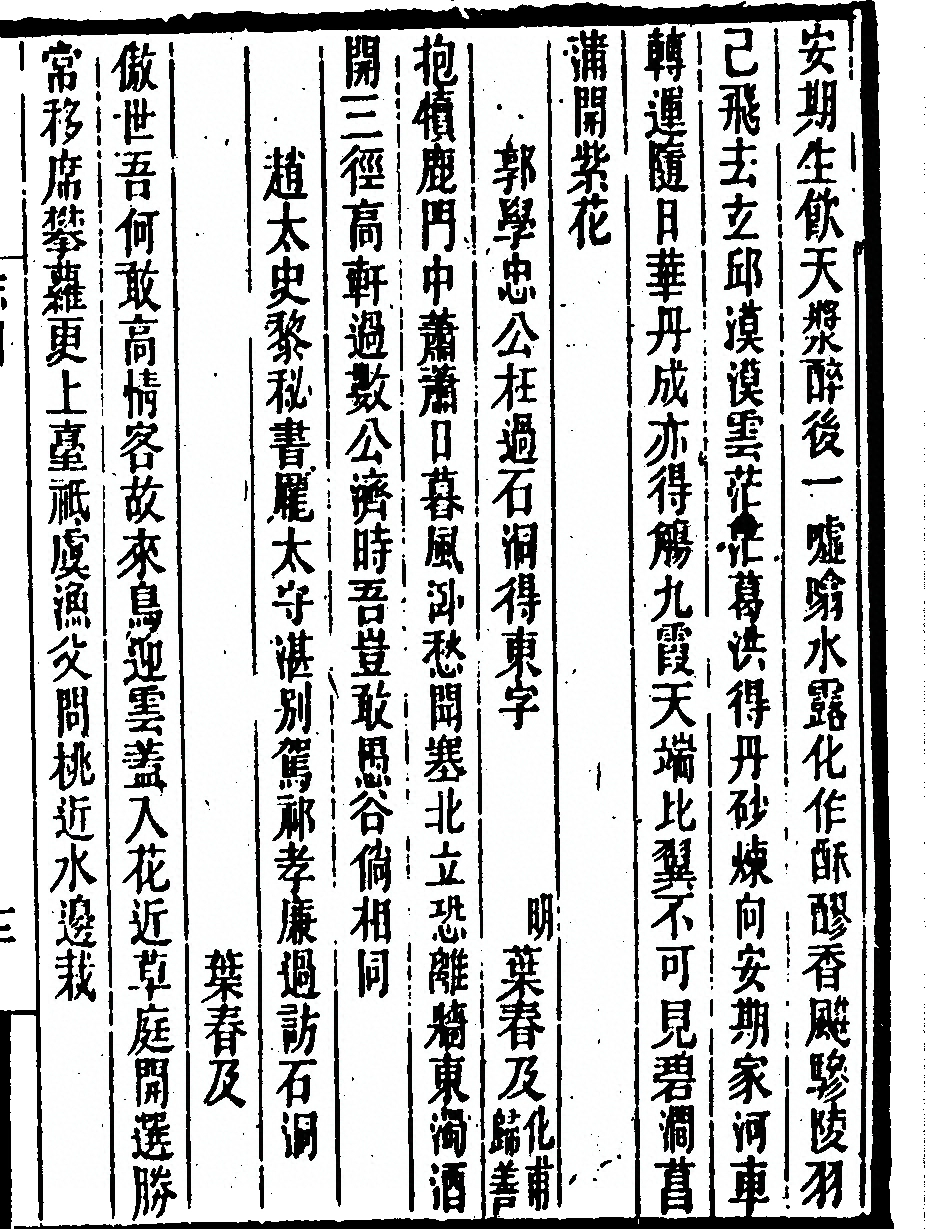 安期生飲天漿醉後一噓噏水露化作酥醪香飈驂陵羽
己飛去玄邱漠漠雲茫茫葛洪得丹砂煉向安期家河車
轉運隨日華丹成亦得觴九霞天端比翼不可見碧澗菖
蒲開紫花
郭學忠公枉過石洞得東字
明葉春及化甫歸善
抱犢鹿門中蕭蕭日暮風卧愁聞塞北立恐離牆東濁酒
開三徑高軒過數公濟時吾豈敢愚谷倘相同
趙太史黎秘書龎太守湛別駕祁孝廉過訪石洞
葉春及
傲世吾何敢高情客故來鳥迎雲蓋入花近草庭開選勝
常移席攀蘿更上臺祗虞漁父問桃近水邊栽
三